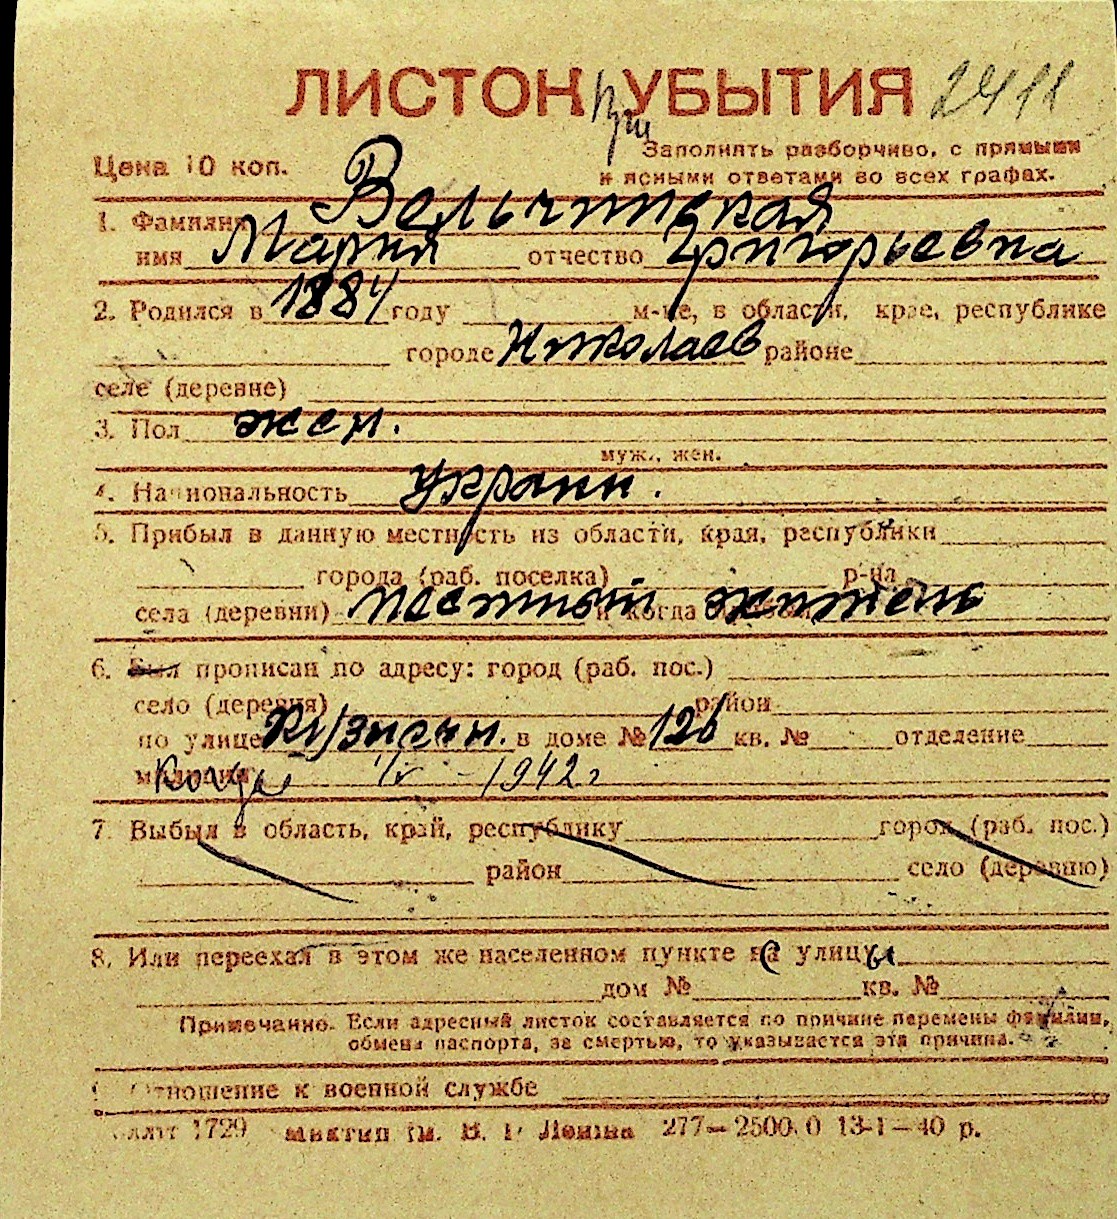 ЛИСТОК При УБЫТИЯ 2411
Цена 10 коп.
Заполнять разборчиво, с прямыми
и ясными ответами во всех графах.
1. Фамилия Вельчитская
имя Мария отчество Григорьевна
2. Родился в 1884 году м-це, в области, крае, республике
городе Николаев районе
селе (деревне)
3. Пол жен.
муж., жен.
4. Национальность Украин.
5. Прибыл в данную местность из области, края, республики
города (раб. поселка) р-на
села (деревни) местный и когда житель
6. Был прописан по адресу: город (раб. пос.)
село (деревня) район
по улице в доме № 126 кв. № отделение
милиции 1942 г
7. Выбыл в область, край, республику город (раб. пос.)
район село (деревню)
8. Или переехал в этом же населенном пункте с улицы
дом № кв. №
Примечание. Если адресный листок составляется по причине перемены фамилии,
обмена паспорта, за смертью, то указывается эта причина.
Отношение к военной службе
1729 Ленина 277—2500.0 13-1—40 р.